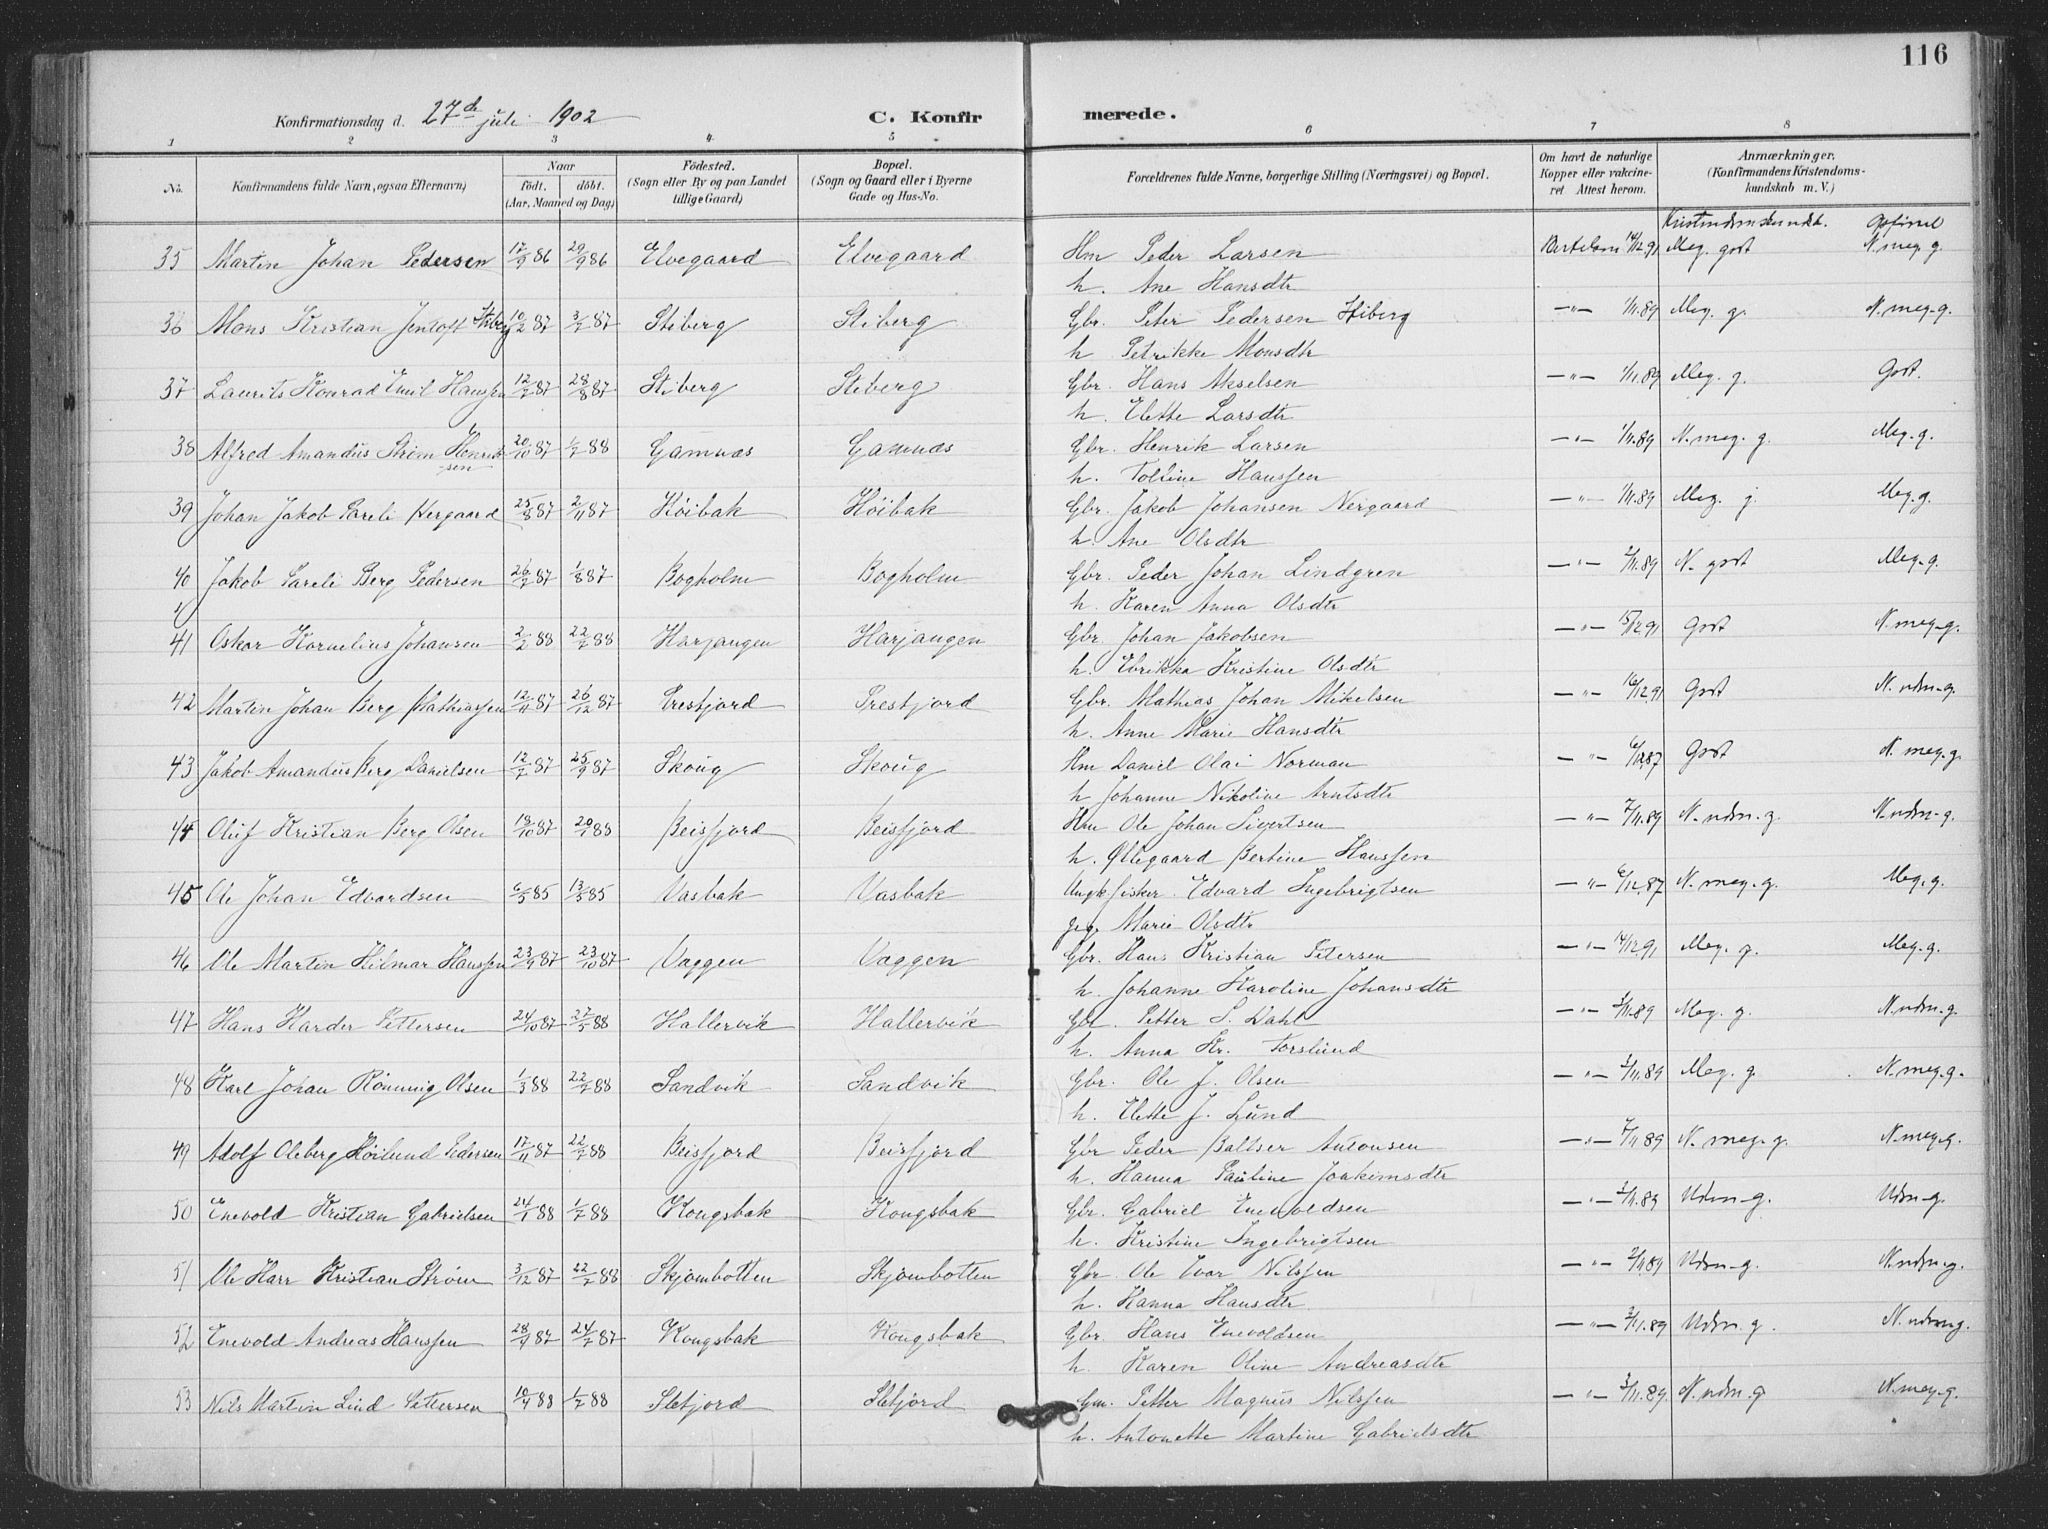 116
Konfirmationsdag d. 27de juli 1902 C. Konfirmerede.
1 2 3 4 5 6 7 8
No. Konfirmandens fulde Navn, ogsaa Efternavn) Naar födt. döbt. (Aar, Maaned og Dag) Födested. (Sogn eller By og paa Landet tillige Gaard) Bopæl. (Sogn og Gaard eller i Byerne Gade og Hus-No. Forældrenes fulde Navne, borgerlige Stilling (Næringsvei) og Bopæl. Om havt de naturlige Kopper eller vakcineret Attest herom. Anmærkninger. (Konfirmandens Kristendomskundskab m. V.)
Kristendomskundsk. Opförsel
35 Martin Johan Pedersen 17/9 86 29/9 86 Elvegaard Elvegaard Hm Peder Larsen Bertelsen 14/12.91 Meg. godt N. meg. g.
h. Ane Hansdtr
36 Mons Kristian Jentoft Stiberg 10/2 87 3/7 87 Stiberg Stiberg Gbr. Peter Pedersen Stiberg —"— 1/11.89 Meg. g. N. meg. g.
h Petrikke Monsdtr
37 Laurits Konrad Emil Hanssen 12/7 87 28/8 87 Stiberg Stiberg Gbr. Hans Akselsen —"— 1/11.89 Meg. g. Godt.
h. Elette Larsdtr
38 Alfred Amandus Strøm Henriksen 20/10 87 1/7 88 Gamnæs Gamnæs Gbr. Henrik Larsen —"— 1/11.89 N. meg. g. Meg. g.
h. Hanssen
39 Johan Jakob Pareli Nergaard 25/8 87 2/11 87 Høibak Høibak Gbr. Jakob Johansen Nergaard —"— 1/11.89 Meg. g. Meg. g.
h. Ane Olsdtr
40 Jakob Pareli Berg Pedersen 26/7 87 1/8 87 Bogholm Bogholm Gbr. Peder Johan Lindgren —"— 2/11.89 N. godt Meg. g.
h. Karen Anna Olsdtr
41 Oskar Kornelius Johansen 2/2 88 22/7 88 Harjangen Harjangen Gbr. Johan Jakobsen —"— 15/12.91 Godt N. meg. g.
h. Ebrikka Kristine Olsdtr
42 Martin Johan Berg Mathiassen 12/11 87 26/12 87 Prestjord Prestjord Gbr. Mathias Johan Mikelsen —"— 16/12.91 Godt N. udm. g.
h. Anne Marie Hansdtr
43 Jakob Amandus Berg Danielsen 12/7 87 25/9 87 Skoug Skoug Hm Daniel Olai Norman —"— 6/12.87 Godt N. meg. g.
h Johanne Nikoline Arntsdtr
44 Oluf Kristian Berg Olsen 18/10 87 20/1 88 Beisfjord Beisfjord Hm Ole Johan Sivertsen —"— 7/11.89 N. udm. g. N. udm. g.
h. Ollegaard Bertine Hanssen
45 Ole Johan Edvardsen 6/5 85 13/5 85 Vasbak Vasbak Ungk. fisker Edvard Ingebrigtsen —"— 6/12.87 N. meg. g. Meg. g.
pige Marie Olsdtr
46 Ole Martin Hilmar Hanssen 23/9 87 23/10 87 Vaggen Vaggen Gbr. Hans Kristian Petersen —"— 14/12.91 Meg. g. Meg. g.
h. Johanne Karoline Johansdtr
47 Hans Harder Pettersen 24/10 87 27/5 88 Hallervik Hallervik Gbr. Petter S. Dahl —"— 2/11.89 Meg. g. N. udm. g.
h. Anna Kr. Torslund
48 Karl Johan Rönning Olsen 1/3 88 22/7 88 Sandvik Sandvik Gbr. Ole J. Olsen —"— 2/11.89 Meg. g. N. meg. g.
h. Elette J. Lund
49 Adolf Oleberg Höilund Pedersen 17/11 87 22/7 88 Beisfjord Beisfjord Gbr Peder Baltser Antonsen —"— 7/11.89 N. meg. g. N. meg. g.
h. Hanna Pauline Joakimsdtr
50 Enevold Kristian Gabrielsen 24/1 88 1/7 88 Kongsbak Kongsbak Gbr. Gabriel Enevoldsen —"— 2/11.89 Udm. g. Udm. g.
h. Kristine Ingebrigtsen
51 Ole Harr Kristian Strøm 3/12 87 22/7 88 Skjombotten Skjombotten Gbr. Ole Ivar Nilssen —"— 2/11.89 Udm. g. N. udm. g.
h. Hanna Hansdtr
52 Enevold Andreas Hanssen 28/4 87 24/7 87 Kongsbak Kongsbak Gbr Hans Enevoldsen —"— 2/11.89 Udm. g. N. udm. g.
h. Karen Oline Andreasdtr
53 Nils Martin Lind Pettersen 10/4 88 1/7 88 Sletjord Sletjord Gm. Petter Magnus Nilssen —"— 3/11.89. N. udm. g N. meg. g.
h. Antonette Martine Gabrielsdtr